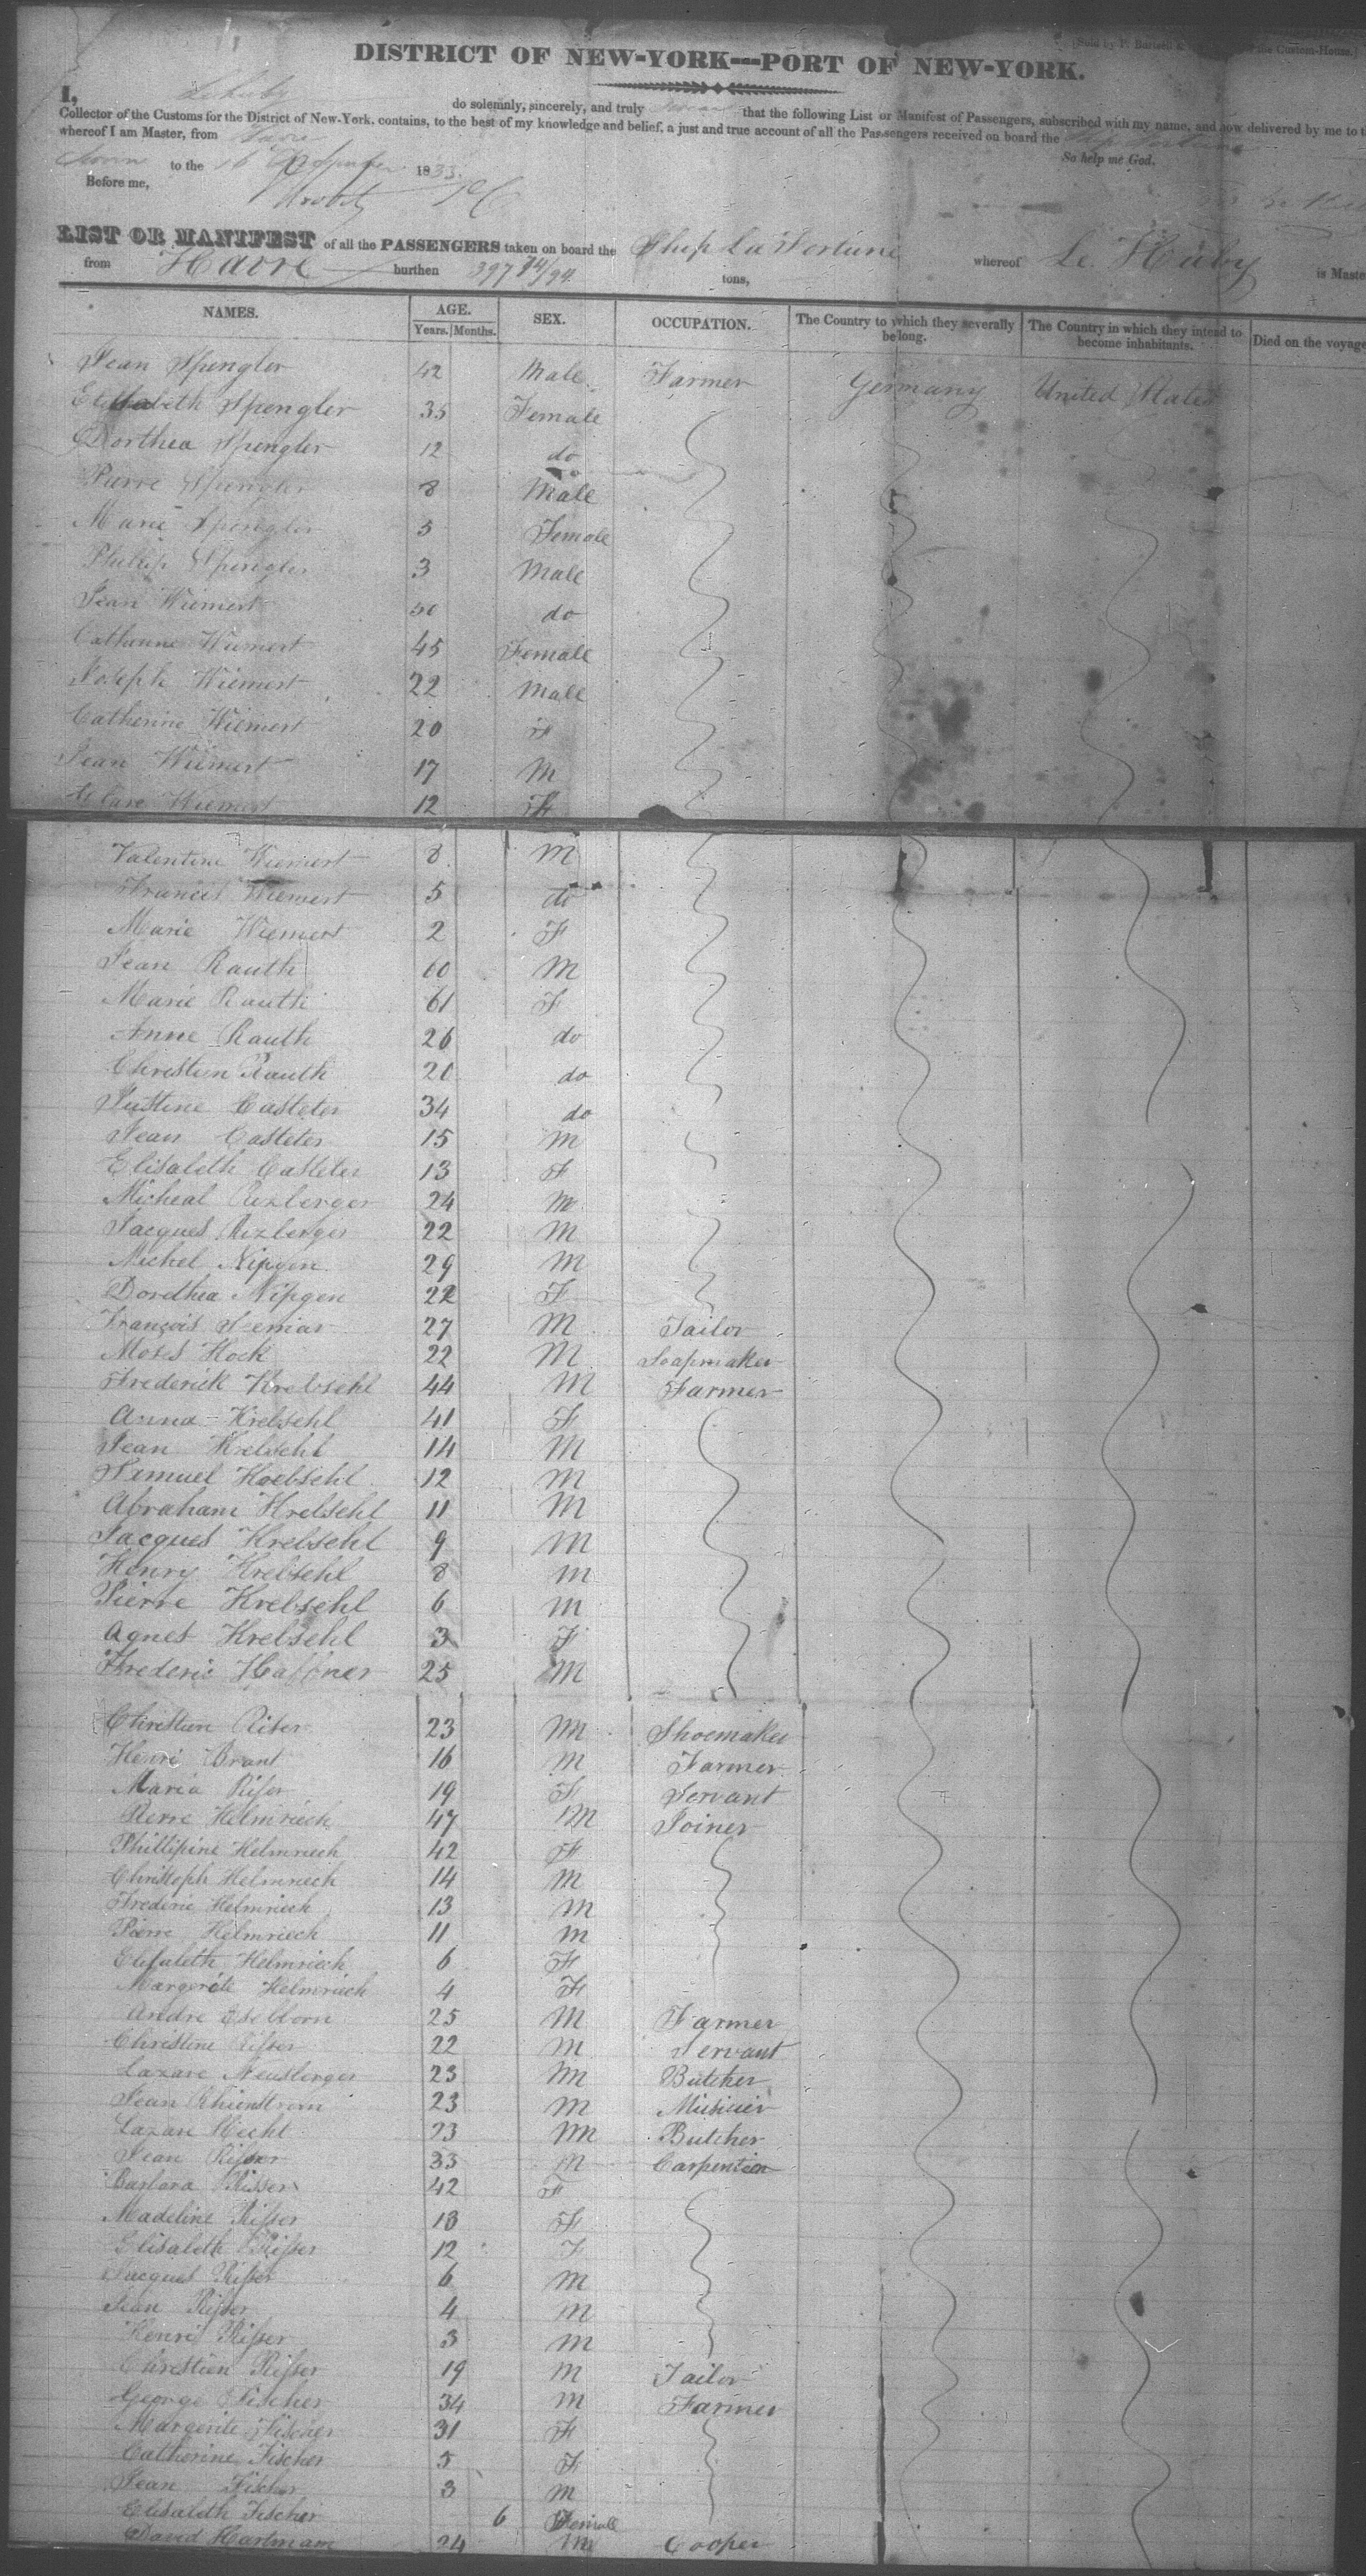 [Sold by P. Burtsell the Custom-House.]
DISTRICT OF NEW-YORK---PORT OF NEW-YORK.
I, Lehuby do solemnly, sincerely, and truly that the following List or Manifest of Passengers, subscribed with my name, and now delivered by me to t
Collector of the Customs for the District of New-York, contains, to the best of my knowledge and belief, a just and true account of all the Passengers received on board the Ship Fortune
whereof I am Master, from Havre So help me God.
Sworn to the 16 1833.
Before me,
LIST OR MANIFEST of all the PASSENGERS taken on board the Ship La Fortune whereof Le Huby is Maste
from Havre burthen 397 74/94 tons,
NAMES. AGE. SEX. OCCUPATION. The Country to which they severally belong. The Country in which they intend to become inhabitants. Died on the voyage
Years. Months.
Jean Spengler 42 Male Farmer Germany United States
Elisabeth Spengler 35 Female
Dorthea Spengler 12 do
Pierre Spengler 8 Male
Marie Spengler 5 Female
Phillip Spengler 3 Male
Jean Wiemert 50 do
Catherine Wiemert 45 Female
Joseph Wiemert 22 Male
Catherine Wiemert 20 F
Jean Wiemert 17 M
Clare Wiemert 12 F
Valentine Wiemert 8 M
Francis Wiemert 5 do
Marie Wiemert 2 F
Jean Rauth 60 M
Marie Rauth 61 F
Anne Rauth 26 do
Christien Rauth 20 do
Justine Casteter 34 do
Jean Casteter 15 M
Elisabeth Casteter 13 F
Micheal Rezberger 24 M
Jacques Rezberger 22 M
Michel Nipgen 29 M
Dorethea Nipgen 22 F
François 27 M Tailor
Moses Hock 22 M Soapmaker
Frederick Krebsehl 44 M Farmer
Anna Krebsehl 41 F
Jean Krebsehl 14 M
Samuel Krebsehl 12 M
Abraham Krebsehl 11 M
Jacques Krebsehl 9 M
Henry Krebsehl 8 M
Pierre Krebsehl 6 M
Agnes Krebsehl 3 F
Frederic Haffner 25 M
Christien Riser 23 M Shoemaker
Henri Brant 16 M Farmer
Maria Risser 19 F Servant
Pierre Helmriech 47 M Joiner
Phillipine Helmriech 42 F
Christoph Helmriech 14 M
Frederic Helmriech 13 M
Pierre Helmriech 11 M
Elisabeth Helmriech 6 F
Margerite Helmriech 4 F
Andre Eselborn 25 M Farmer
Christine Risser 22 M Servant
Lazare Neuberger 23 M Butcher
Jean 23 M Musicier
Lazare Hecht 23 M Butcher
Jean Risser 33 M Carpentier
Barbara Risser 42 F
Madeline Risser 13 F
Elisabeth Risser 12 F
Jacques Risser 6 M
Jean Risser 4 M
Henri Risser 3 M
Christien Risser 19 M Tailor
George Fischer 34 M Farmer
Margerite Fischer 31 F
Catherine Fischer 5 F
Jean Fischer 3 M
Elisabeth Fischer 6 Female
David Hartmann 24 M Cooper